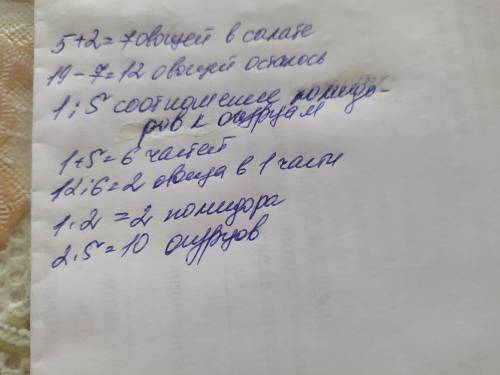 5+2=7 овощей в салате
19-7=12 овощей осталось
1:5 соотношение помидо-
ров к огурцам
1+5=6 частей
12:6=2 овоща в 1 части
1·2=2 помидора
2·5=10 огурцов